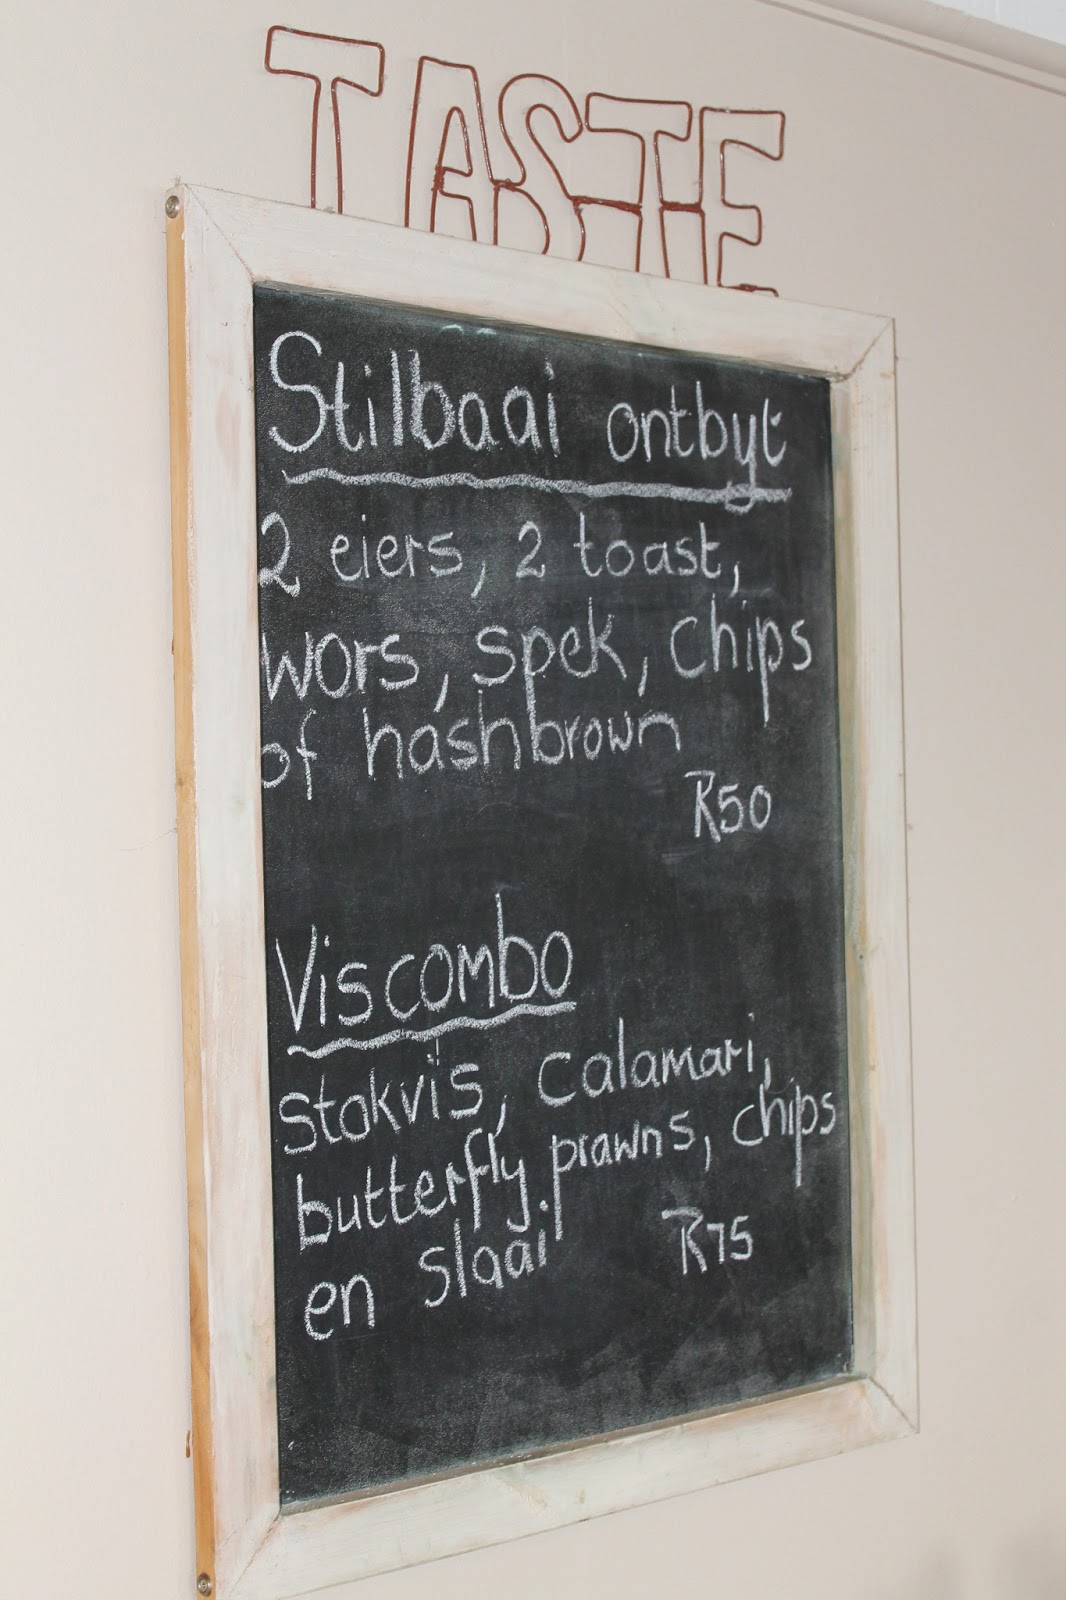 TASTE
Stilbaai ontbyt
2 eiers, 2 toast,
wors, spek, chips
of hashbrown
R50
Viscombo
Stokvis, calamari,
butterfly prawns, chips
en slaai R75